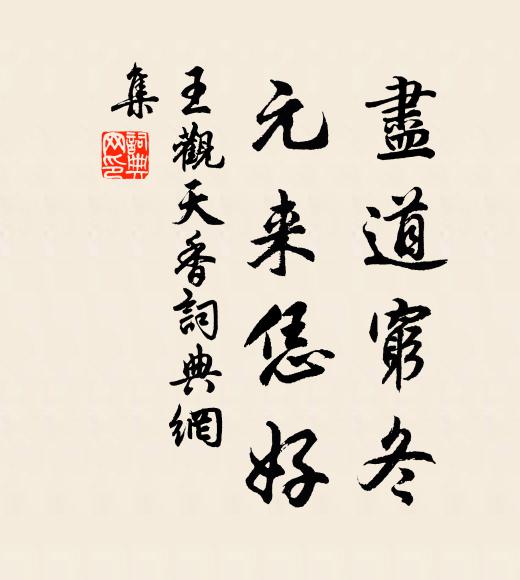 盡道窮冬
元来恁好
王觀天香詞典網
集
詞典網印